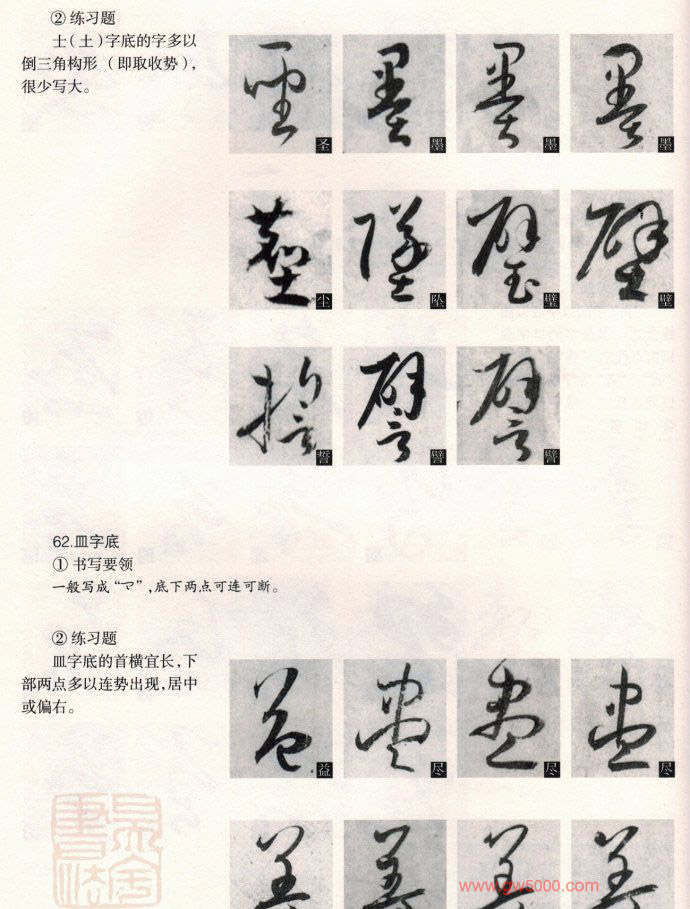 ② 练习题
士(土)字底的字多以
倒三角构形(即取收势),
很少写大。
圣 墨 墨 墨
尘 坠 璧 壁
誓 譬 譬
62.皿字底
① 书写要领
一般写成“”,底下两点可连可断。
② 练习题
皿字底的首横宜长,下
部两点多以连势出现,居中
或偏右。
益 尽 尽 尽
www.gw5000.com